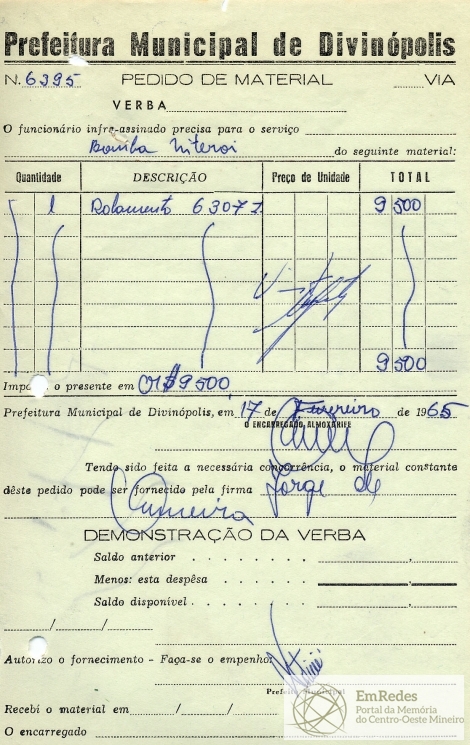 Prefeitura Municipal de Divinópolis
N. 6395 PEDIDO DE MATERIAL VIA
VERBA
O funcionário infra-assinado precisa para o serviço
Bomba Niteroi do seguinte material:
Quantidade DESCRIÇÃO Preço de Unidade TOTAL
1 Rolamento 6307 Z 9 500
9 500
o presente em CR$ 9500,
Prefeitura Municipal de Divinópolis, em 17 de Fevereiro de 1965
O ENCARREGADO ALMOXARIFE
Tendo sido feita a necessária concorrência, o material constante
dêste pedido pode ser fornecido pela firma Jorge de
DEMONSTRAÇÃO DA VERBA
Saldo anterior
Menos: esta despêsa
Saldo disponível
Autorizo o fornecimento - Faça-se o empenho:
Prefeito Municipal
Recebí o material em / /
O encarregado
EmRedes
Portal da Memória
do Centro-Oeste Mineiro